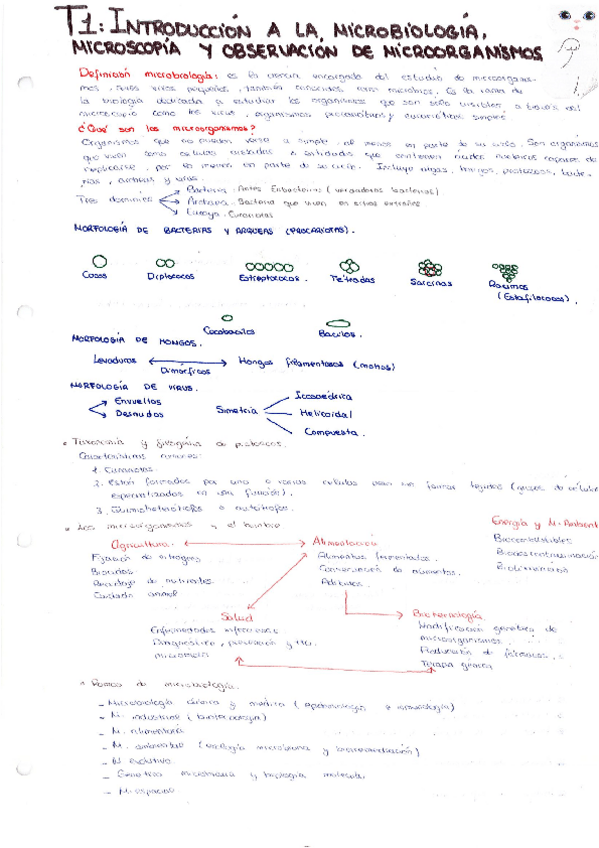 T1: INTRODUCCIÓN A LA MICROBIOLOGÍA,
MICROSCOPÍA Y OBSERVACIÓN DE MICROORGANISMOS
Definición microbiología: es la ciencia encargada del estudio de microorganis-
mos, seres vivos pequeños, también conocidos como microbios. Es la rama de
la biología dedicada a estudiar los organismos que son sólo visibles a través del
microscopio como los virus, organismos procariotas y eucariotas simples
¿Qué son los microorganismos?
Organismos que no pueden verse a simple al menos en parte de su ciclo. Son organismos
que viven como células aisladas o entidades que contienen ácidos nucleicos capaces de
replicarse, por lo menos en parte de su ciclo. Incluye algas, hongos, protozoos, bacte-
rias, arqueas y virus.
Tres dominios
Bacteria. Antes Eubacterias (verdaderas bacterias)
Archaea. Bacteria que viven en sitios extraños
Eucarya. Eucariotas
MORFOLOGÍA DE BACTERIAS Y ARQUEAS (PROCARIOTAS).
Cocos Diplococos Estreptococos. Tétradas Sarcinas Racimos
(Estafilococos).
Cocobacilos Bacilos.
MORFOLOGÍA DE HONGOS.
Levaduras Hongos filamentosos (mohos)
Dimórficos
MORFOLOGÍA DE VIRUS.
Envueltos
Desnudos
Simetría
Icosaédrica
Helicoidal
Compuesta.
Taxonomía y de protozoos.
Características comunes:
1. Eucariotas.
2. Están formados por una o varias células pero sin formar tejidos (grupos de células
especializados en una función).
3. Quimioheterótrofos o autótrofos.
Los microorganismos y el hombre
Agricultura.
Fijación de nitrógeno
Reciclaje de nutrientes
Cuidado animal
Alimentación
Alimentos fermentados.
Conservación de alimentos.
Aditivos
Energía y M. Ambient
Biocombustibles
Biodescontaminación
Salud
Enfermedades infecciosas
Diagnóstico, prevención y tto.
Biotecnología
Modificación genética de
microorganismos.
Producción de fármacos.
Terapia génica
Ramas de microbiología.
- Microbiología clínica y médica (epidemiología e inmunología)
- M. industrial (biotecnología)
- M. alimentaria
- M. ambiental (ecología microbiana y biorremediación)
- M. evolutiva
- Genética microbiana y biología molecular
- M. espacial